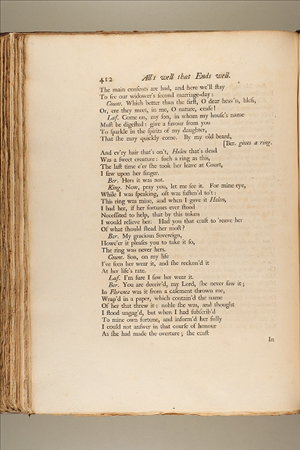 412 All's well that Ends well.
The main consents are had, and here we'll ſtay
To ſee our widower's ſecond marriage-day:
Count. Which better than the firſt, O dear heav'n, bleſs,
Or, ere they meet, in me, O nature, ceaſe!
Laf. Come on, my ſon, in whom my houſe's name
Muſt be digeſted: give a favour from you
To ſparkle in the ſpirits of my daughter,
That ſhe may quickly come. By my old beard,
[Ber. gives a ring.
And ev'ry hair that's on't, Helen that's dead
Was a ſweet creature: ſuch a ring as this,
The laſt time e'er ſhe took her leave at Court,
I ſaw upon her finger.
Ber. Hers it was not.
King. Now, pray you, let me ſee it. For mine eye,
While I was ſpeaking, oft was faſten'd to't:
This ring was mine, and when I gave it Helen,
I bad her, if her fortunes ever ſtood
Neceſſited to help, that by this token
I would relieve her. Had you that craft to 'reave her
Of what ſhould ſtead her moſt?
Ber. My gracious Sovereign,
Howe'er it pleaſes you to take it ſo,
The ring was never hers.
Count. Son, on my life
I've ſeen her wear it, and ſhe reckon'd it
At her life's rate.
Laf. I'm ſure I ſaw her wear it.
Ber. You are deceiv'd, my Lord, ſhe never ſaw it;
In Florence was it from a caſement thrown me,
Wrap'd in a paper, which contain'd the name
Of her that threw it: noble ſhe was, and thought
I ſtood ungag'd, but when I had ſubſcrib'd
To mine own fortune, and inform'd her fully
I could not anſwer in that courſe of honour
As ſhe had made the overture; ſhe ceaſt
In